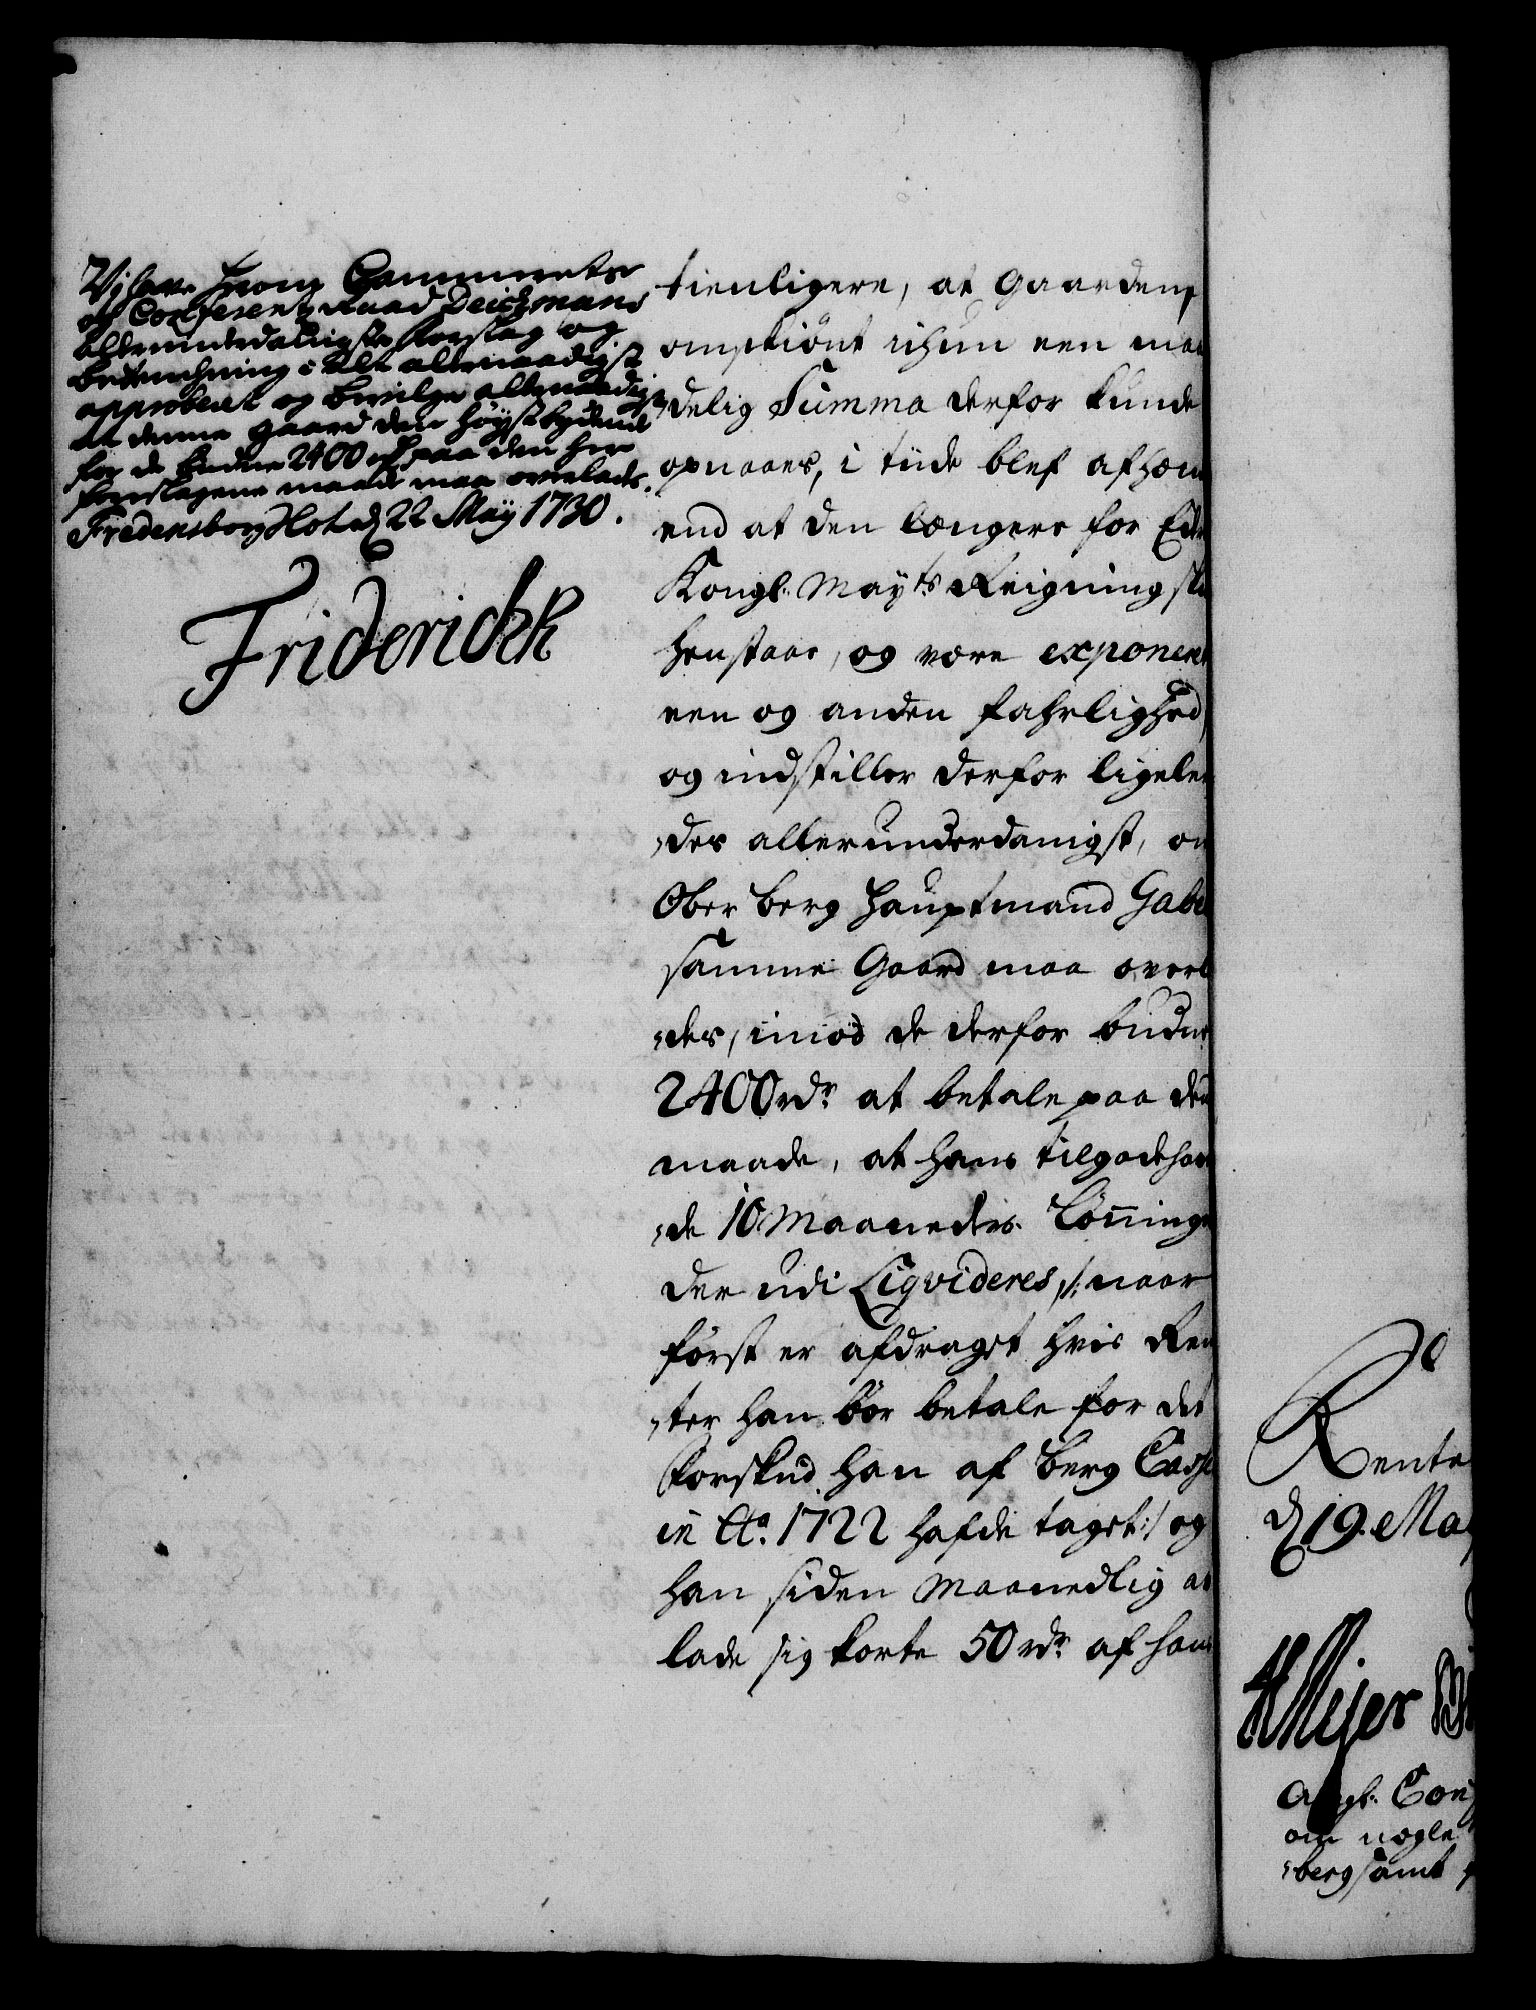 Vi have hvorg Cammerets
og Conferentz Raad Deichmans
allerunderdanigste forslag og
betenchning i alt allernaadigst
approberet og bevilge allernaadigst
at denne gaard den höystbydende
for de budne 2400 rd paa den her
foreslagene maade maa overlades.
Fredensborg Slot d 22 Maÿ 1730.
Friderich R
tienligere, at Gaarden,
omskiönt ichun een maa
delig Summa derfor kunde
opnaaes, i tiide blef afhæn
end at den længere for Eders
Kongl. Mayts Reigning skul
henstaae, og være exponeret
een og anden fahrlighed,
og indstiller derfor ligele,
„des allerunderdanigst, om
Ober Berg Hauptmand Gabel
samme Gaard maa overla
„des, imod de derfor budne
2400 rdr at betale paa den
maade, at hans tilgodehaven
„de 10 Maaneders Lönninge
der udi Liqvideres /: naar
først er afdraget hvis Ren
„ter han bör betale for det
forskud han af Berg Casse
in Ao. 1722 hafde taget :/ og
han siden Maanedlig at
lade sig korte 50 rdr af hans
Rente
d 19. May
HMejer
Angl. Con
om nogle
„berg samt